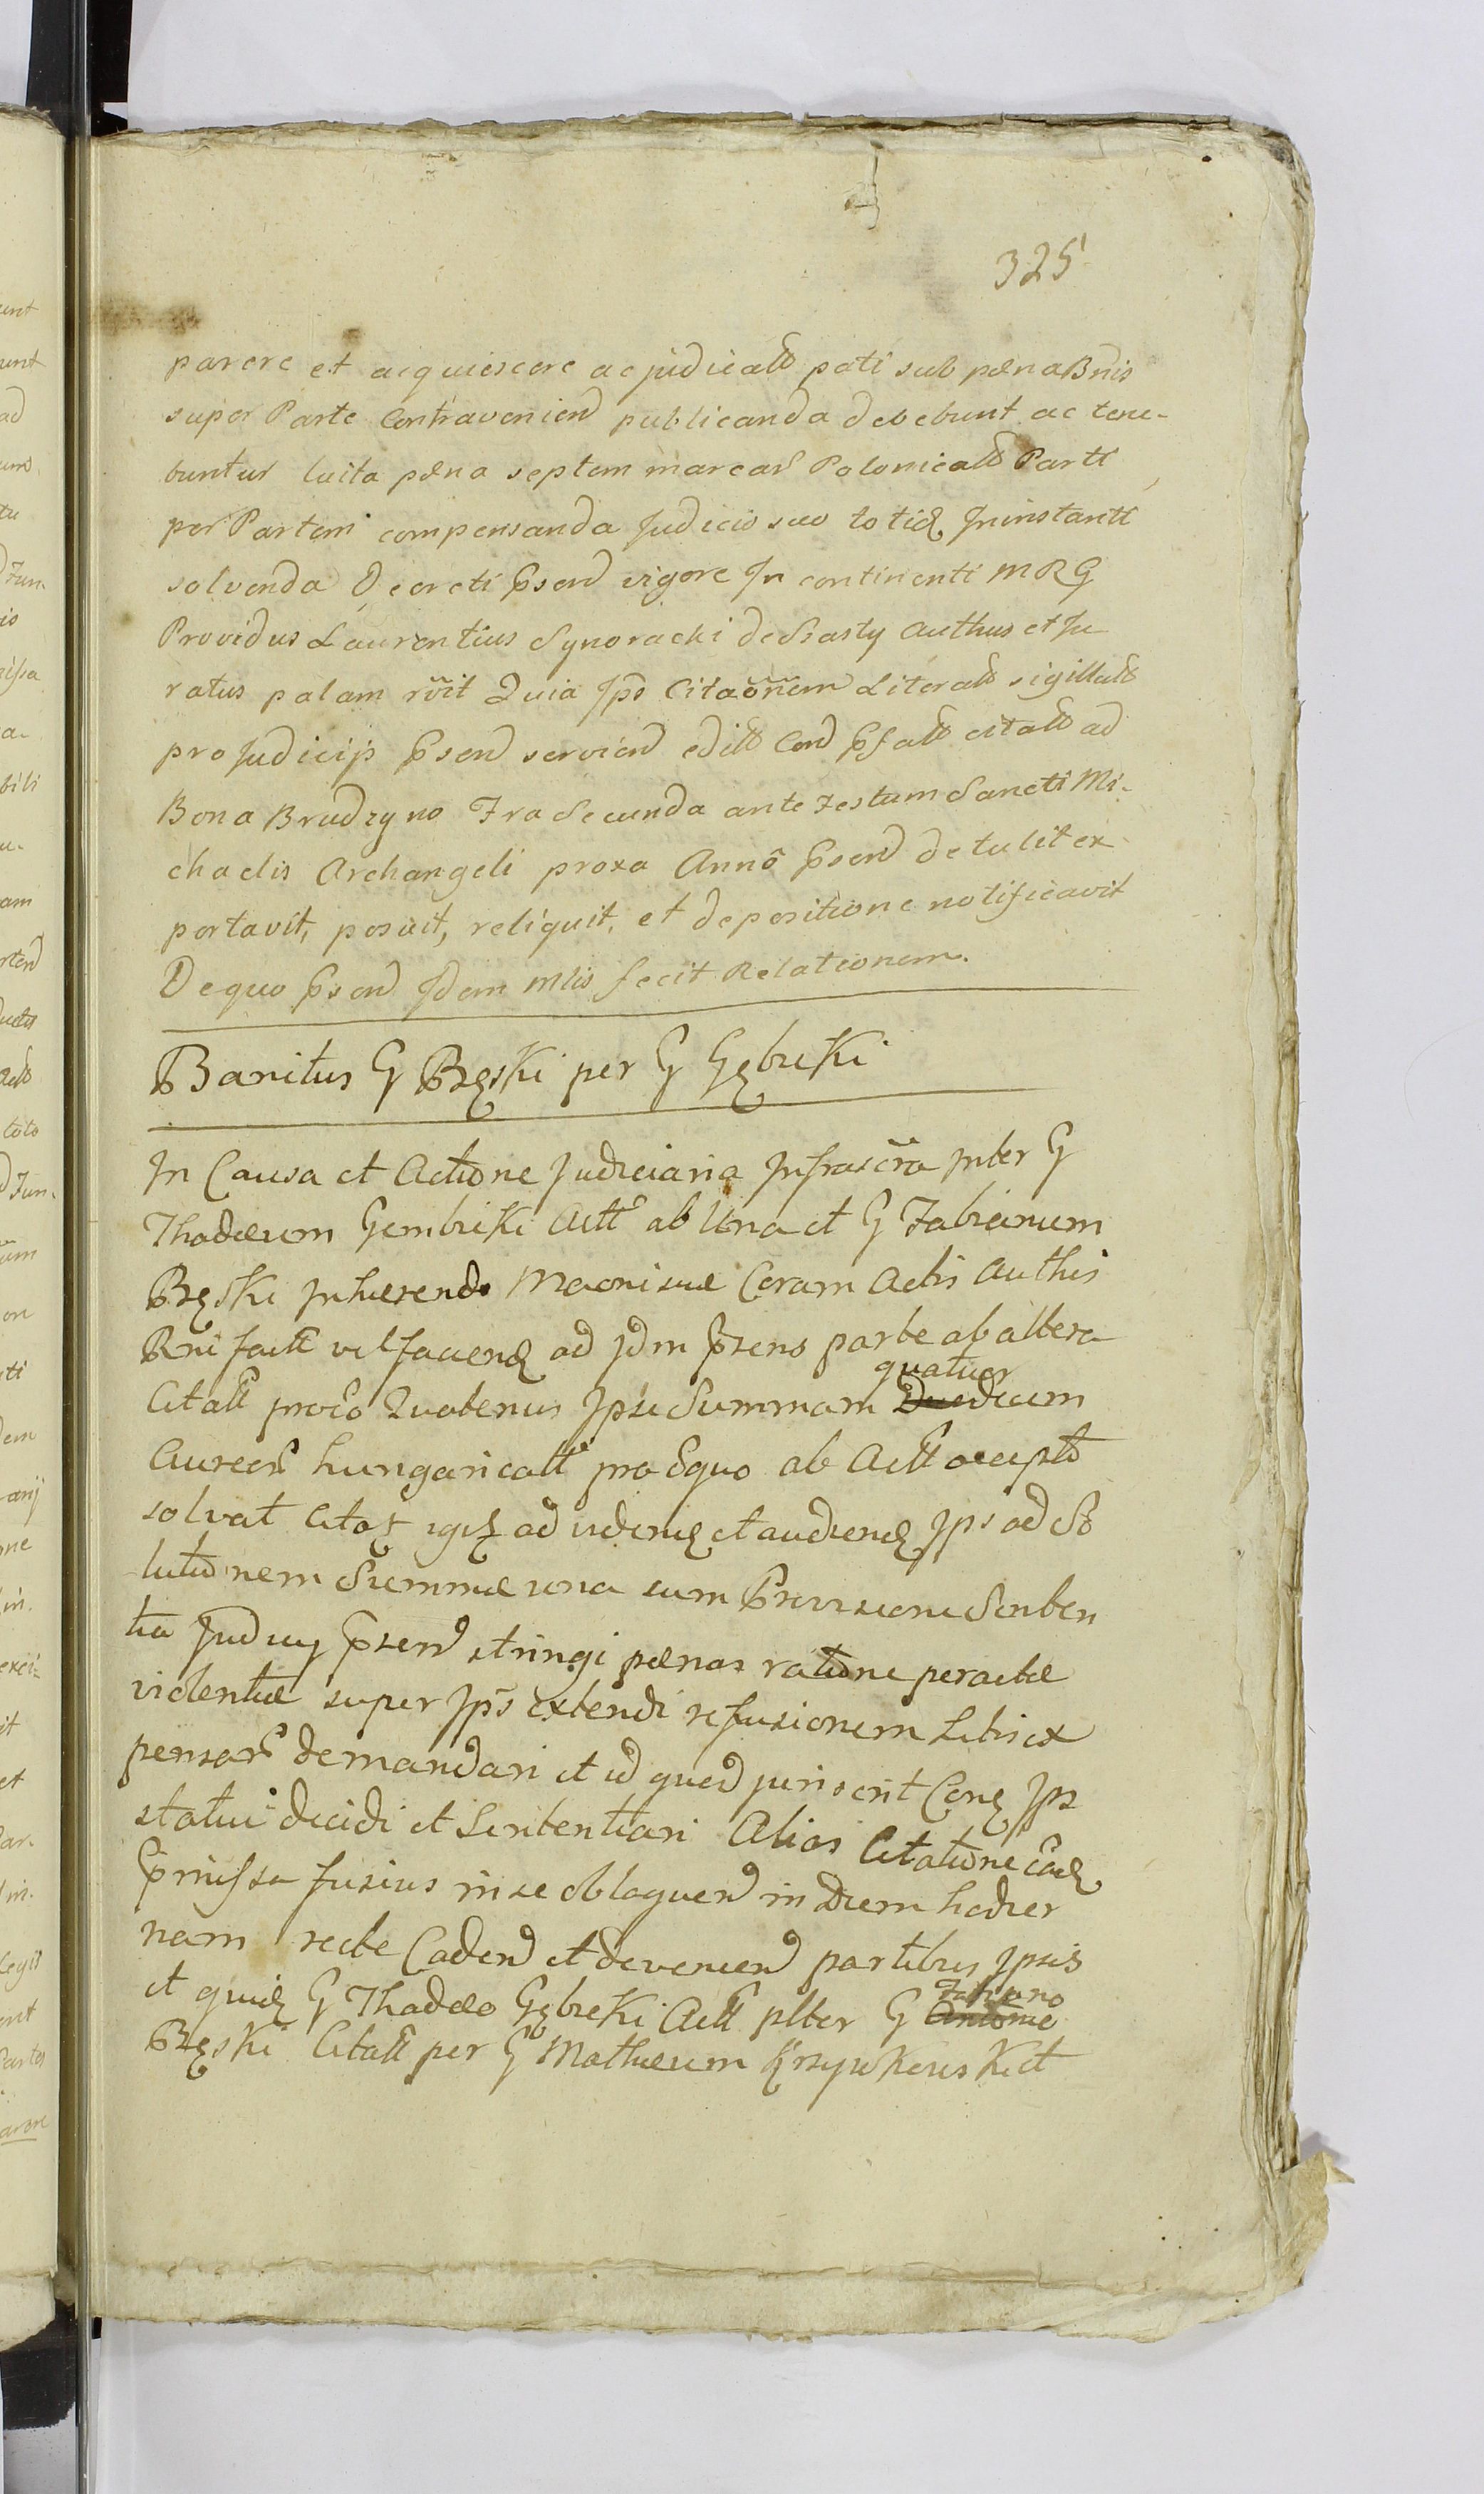 325
parere et acquiescere ac judicatt pati sub pæna Bnis
super Parte Contravenien publicanda debebunt ac tene-
buntur luita pæna septem marcar Polonicatt Parti
per Partem compensanda Judicio suo totidz Ininstanti
solvenda Decreti Psen vigore In continenti MRG
Providus Laurentius Synoracki de Srasty Authus et Ju
ratus palam rvit Quia Ips Citaonem Literatt sigillatt
pro Judicijs Psen servien editt Con Psatt citatt ad
Bona Brudzyno Fra Secunda ante Festum Sancti Mi-
chaelis Archangeli proxa Anno Psen detulit ex
portavit, posuit, reliquit, et depositione notificavit
De quo Psen Idem Mlis fecit Relationem.
Banitus G Bręski per G Gębicki
In Causa et Actione Judiciaria Infrascra Inter G
Thadæum Gembicki Att ab Una et G Fabianum
Bręski Inhærendo Maonisuæ Coram Actis Authis
Rni fatt vel faciend ad Idm Psens parte ab altera
Citatt procō Quatenus Ipse Summam quatuor decem
Aureor hungaricatt pro Equo ab Actt accepto
solvat Citaz igitz ad videndz et audiendz Ips ad So
lutionem Summæ una cum Provisione Senten
tia Judicij Psen stringi pænas ratione peractæ
violentiæ super Ips extendi refusionem Litis ex
pensar demandari et id quod juris erit Conz Ips
statui decidi et Sententiari Alias Citatione eadz
Pmissa fusius in se obloquen in Diem hodier
nam recte Caden et devenien partibus Ipsis
et quidz G Thadæo Gębicki Actt plter G Fabiano Antonio
Bręski Citatt per G Mathæum Krzywkowski et